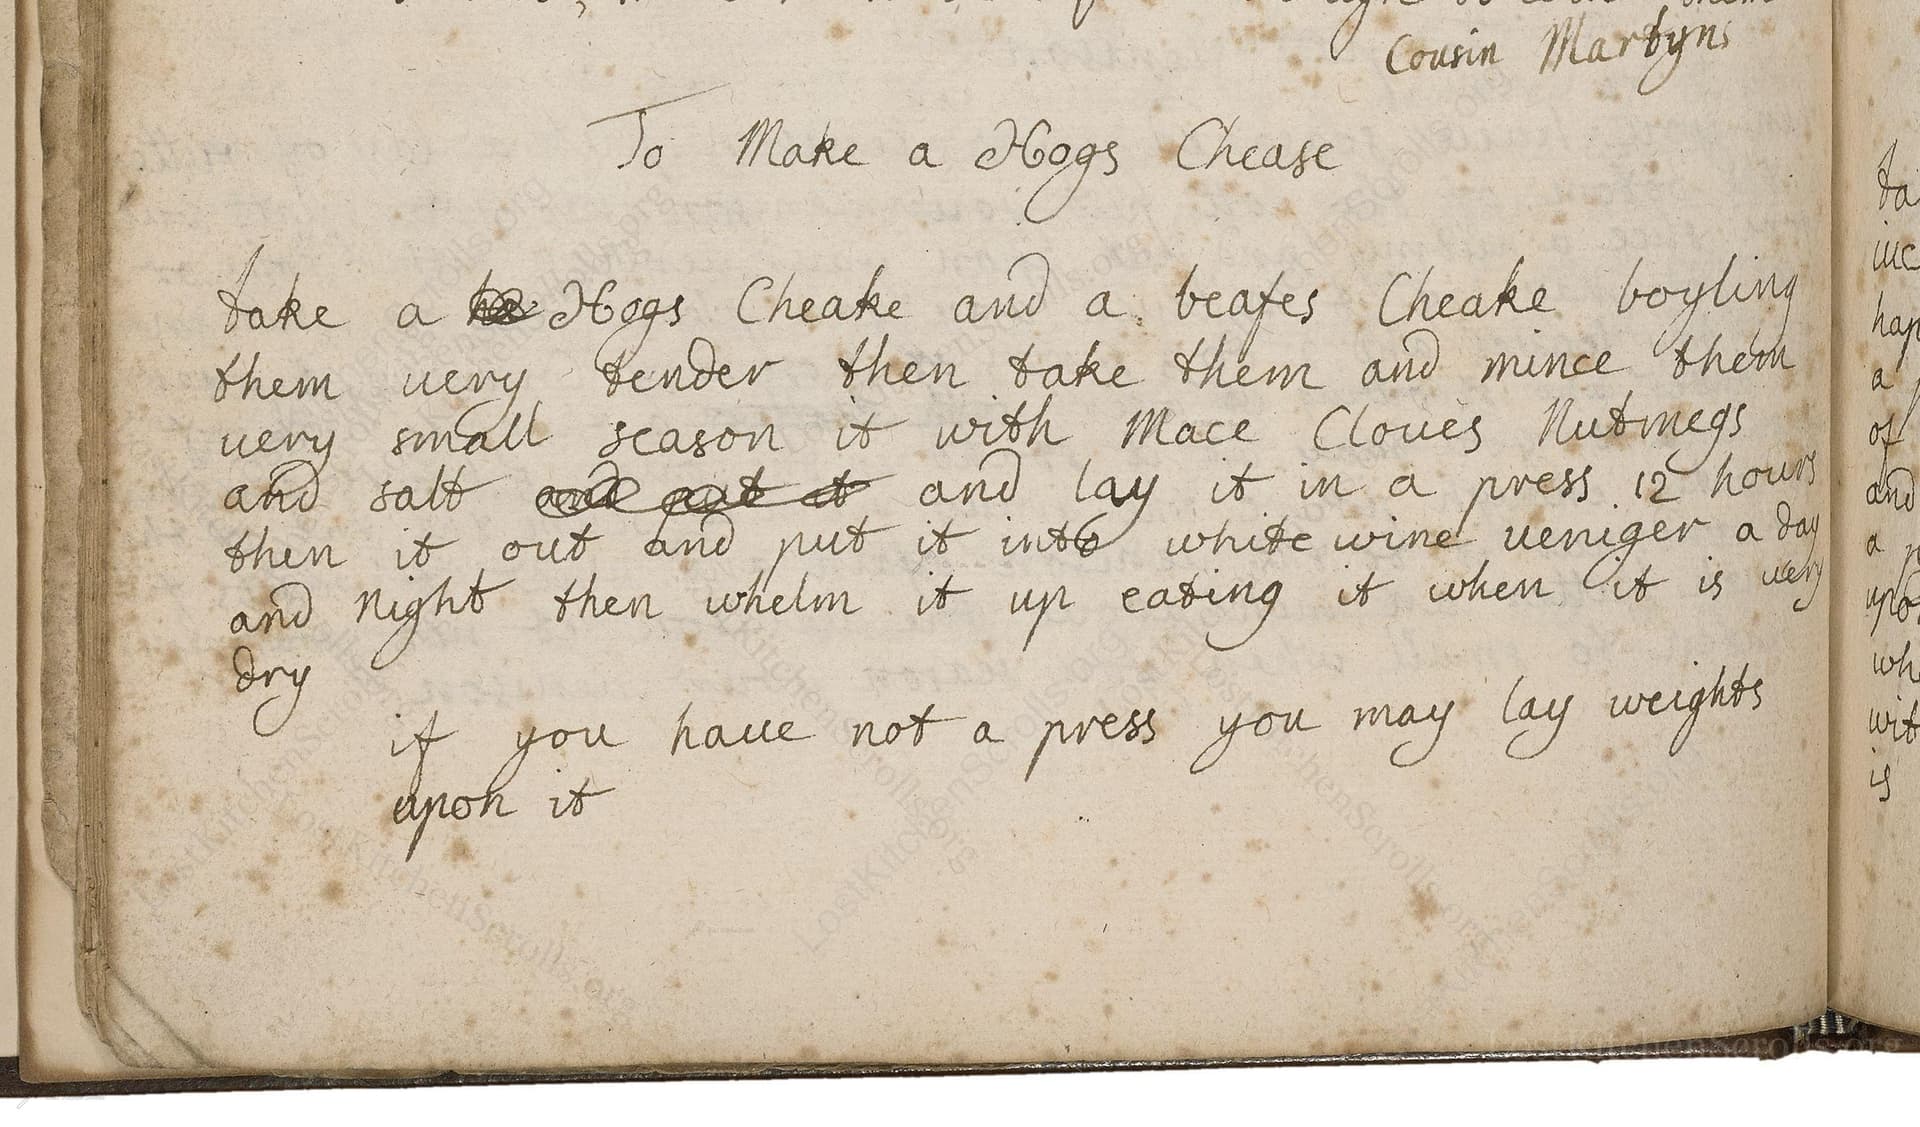 Cousin Martyns
To Make a Hogs Chease
take a Hogs Cheake and a beafes Cheake boyling
them uery tender then take them and mince them
uery small season it with Mace Cloues Nutmegs
and salt and put it and lay it in a press 12 hours
then it out and put it into white wine ueniger a day
and night then whelm it up eating it when it is uery
dry
if you haue not a press you may lay weights
upon it
of
and
a
is
LostKitchenScrolls.org